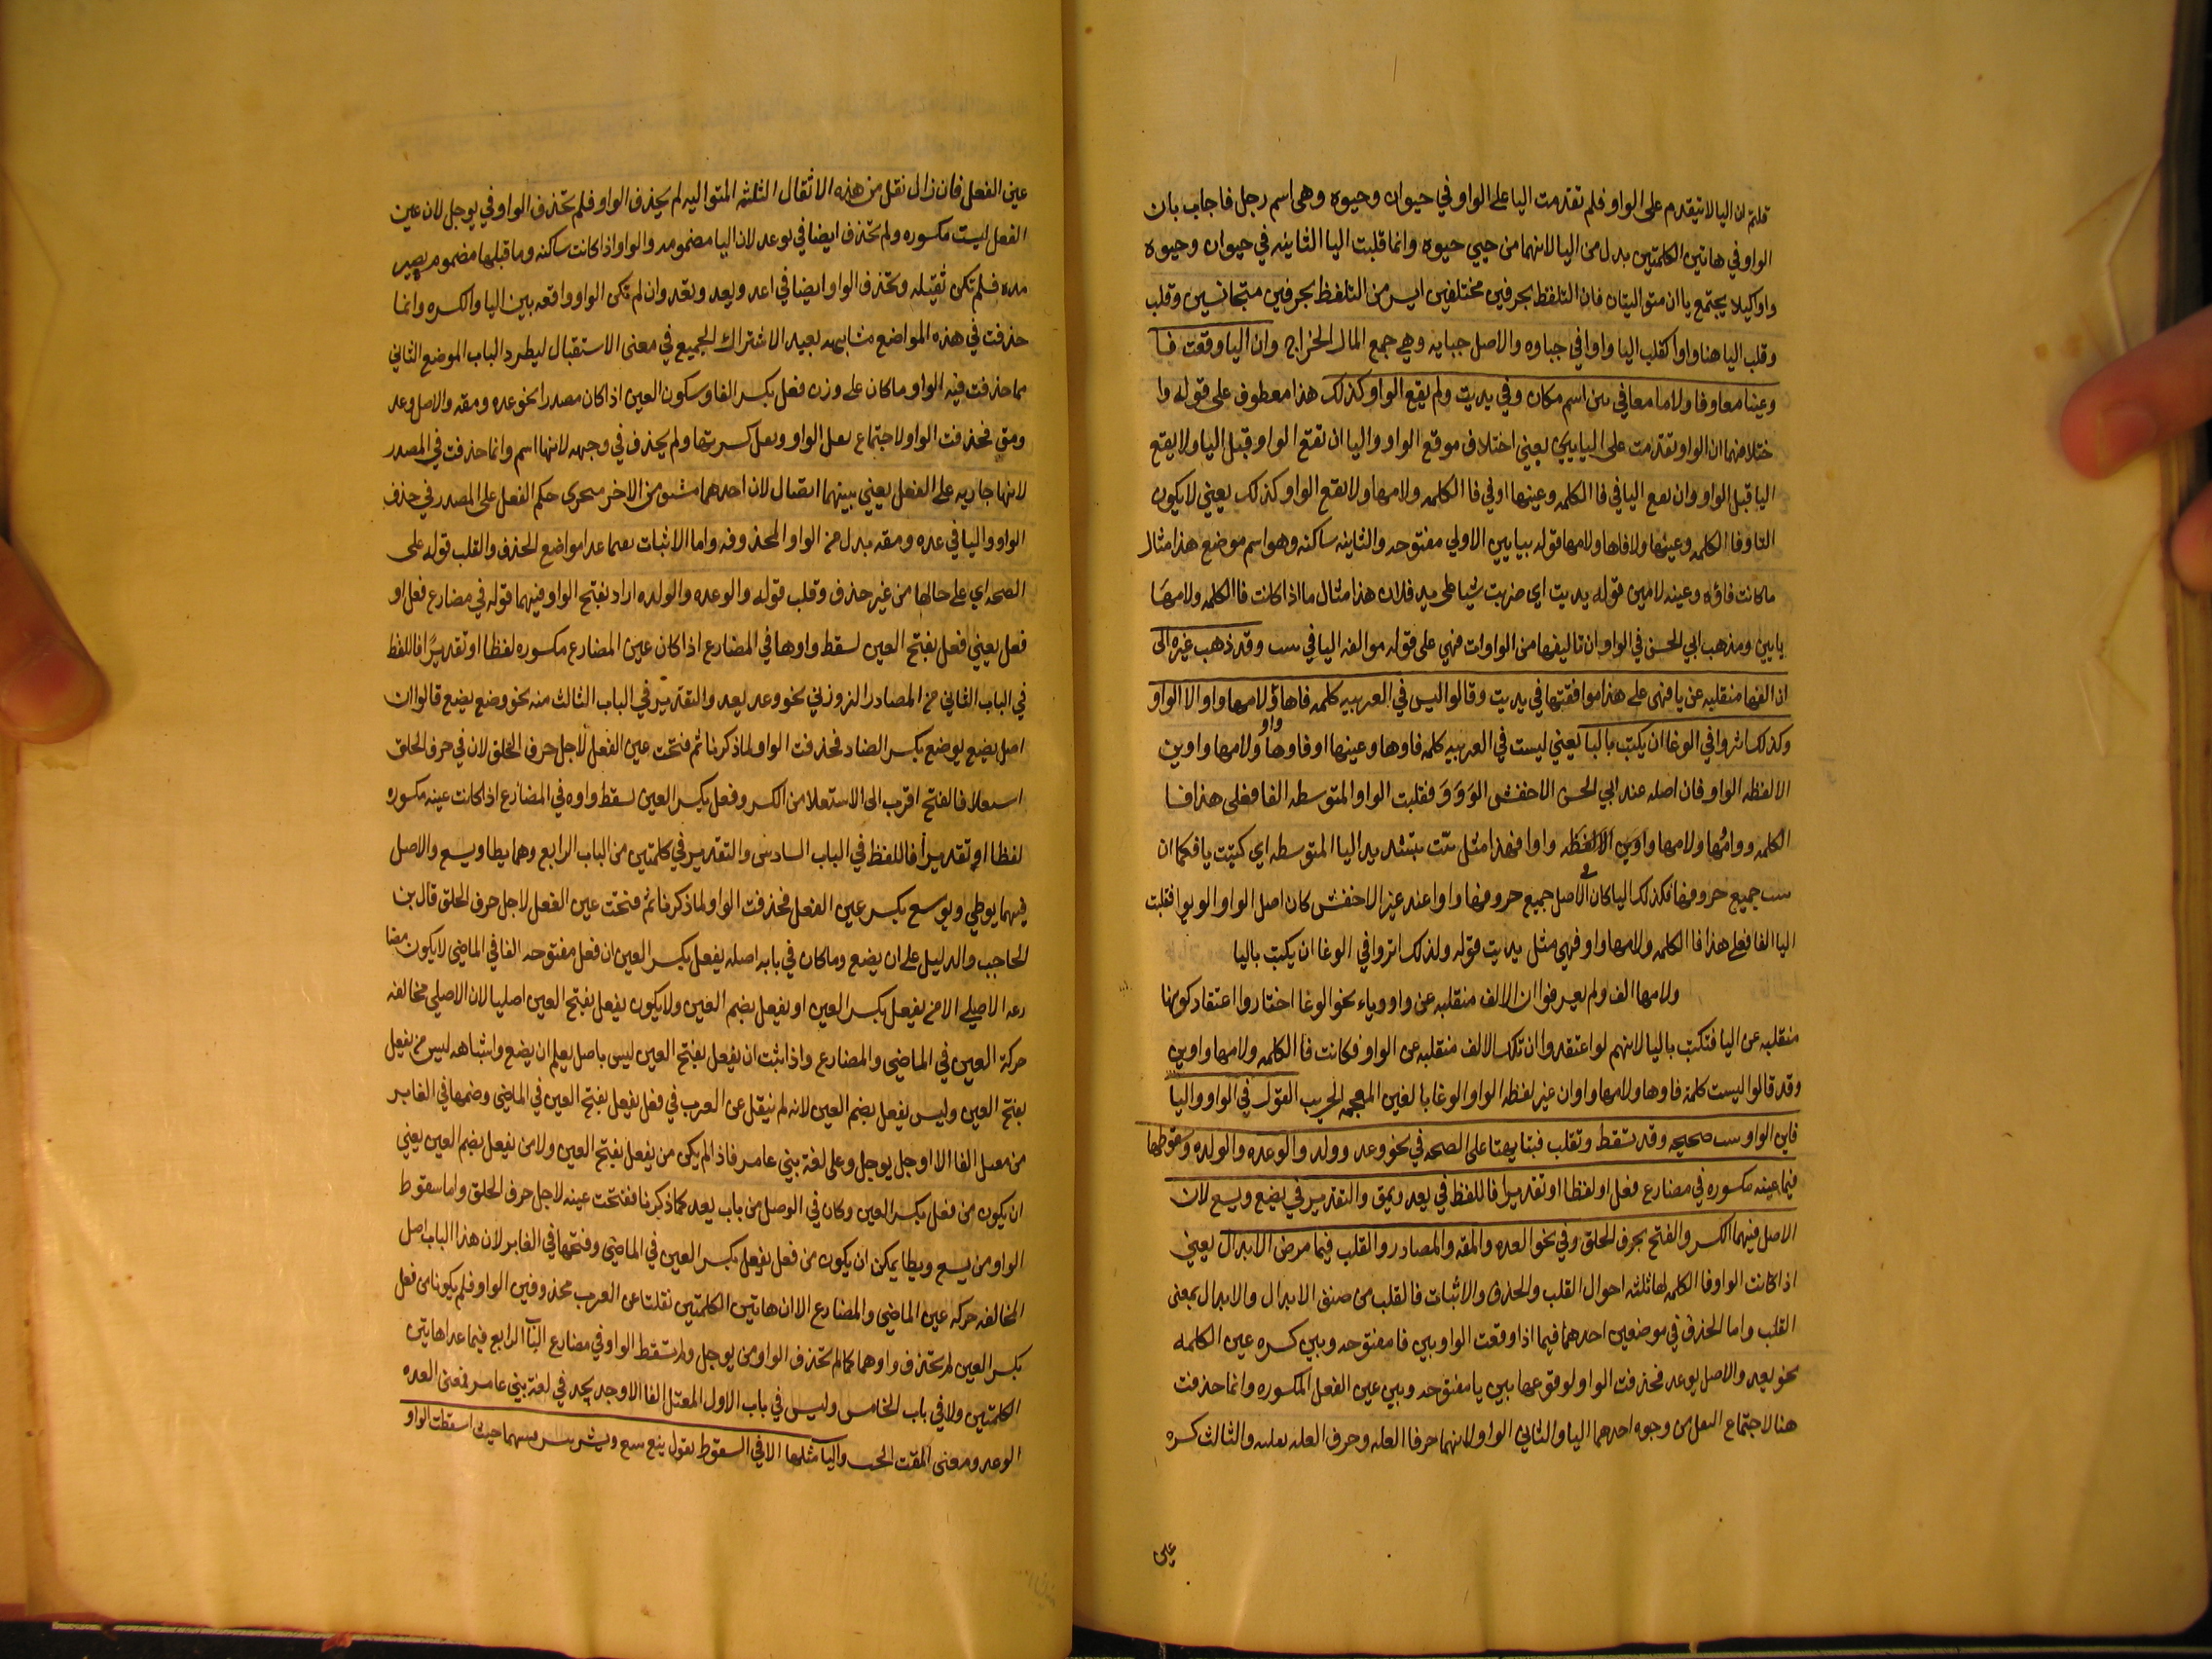 قلتم ان اليا لا تتقدم على الواو فلم تقدمت اليا على الواو في حيوان وحيوه وهى اسم رجل فاجاب بان
الواو في هاتين الكلمتين بدل من اليا لانهما من حيي حيوه وانما قلبت اليا الثانيه في حيوان وحيوه
واوا كيلا يجتمع ياان متواليتان فان التلفظ بحرفين مختلفين ايسر من التلفظ بحرفين متجانسين وقلب
وقلب اليا هنا واوا كقلب اليا واوا في جباوه والاصل جبايه وهي جمع المال الخراج وان اليا وقعت فا
وعينا معا وفا ولاما معا في يين اسم مكان وفي يديت ولم يقع الواو كذلك هذا معطوف على قوله وا
ختلافهما ان الواو تقدمت على اليا يعني اختلاف موقع الواو واليا ان تقع الواو قبل اليا ولا يقع
اليا قبل الواو وان يقع اليا في فا الكلمه وعينها او في فا الكلمه ولامها ولا يقع الواو كذلك يعني لا يكون
الواو فا الكلمه وعينها ولا فاها ولامها قوله بيايين الاولى مفتوحه والثانيه ساكنه وهو اسم موضع هذا مثال
ما كانت فاؤه وعينه لامين قوله يديت اى ضربت شيا على يد فلان هذا مثال ما اذا كانت فا الكلمه ولامها
يايين ومذهب ابي الحسن في الواو ان تاليفها من الواوات فهي على قوله موالفه اليا في وقد ذهب غيره الى
ان الفها منقلبه عن يا فهى على هذا موافقتها في يديت وقالوا ليس في العربيه كلمه فاها ولامها واو الا الواو
وكذلك اثروا في الوغا ان يكتب باليا يعني ليست في العربيه كلمه فاوها وعينها او فاوها واو ولامها واوين
الا لفظه الواو فان اصله عند ابي الحسن الاخفش الوَوَوَ فقلبت الواو المتوسطه الفا فعلى هذا فا
الكلمه وواؤها ولامها واوين الا لفظه واوا فهذا مثل ييت بتشديد اليا المتوسطه اي كتبت يا فكما ان
جميع حروفها فكذلك اليا كان في الاصل جميع حروفها واوا عند غير الاخفش كان اصل الواو الويو فقلبت
اليا الفا فعلى هذا فا الكلمه ولامها واو فهي مثل يديت قوله ولذلك اثروا في الوغا ان يكتب باليا
ولامها الف ولم يعرفوا ان الالف منقلبه عن واو وياء نحو الوغا اختاروا اعتقاد كونها
منقلبه عن اليا فتكتب باليا لانهم لو اعتقدوا ان تلك الالف منقلبه عن الواو فكانت فا الكلمه ولامها واوين
وقد قالوا ليست كلمة فاوها ولامها واوان غير لفظه الواو الوغا بالغين المعجمه الحرب القول في الواو واليا
فاين الواو صحيحه وقد تسقط وتقلب فبقايها على الصحه في نحو وعد وولد والوعده والولده وسقوطها
فيما عينه مكسوره في مضارع فعل او لفظا او تقديرا فاللفظ في يعد ويمق والتقدير في يضع ويسع لان
الاصل فيهما الكسر والفتح بحرف الحلق وفي نحو العده والمقه والمصادر والقلب فيما مر من الابدال يعني
اذا كانت الواو فا الكلمه لها ثلثه احوال القلب والحذف والاثبات فالقلب من صنف الابدال والابدال بمعنى
القلب واما الحذف في موضعين احدهما فيما اذا وقعت الواو بين فا مفتوحه وبين كسره عين الكلمه
نحو يعد والاصل يوعد فحذفت الواو لوقوعها بين يا مفتوحه وبين عين الفعل المكسوره وانما حذفت
هنا لاجتماع الثقل من وجوه احدهما اليا والثاني الواو لانهما حرفا العله وحرف العله ثقيله والثالث كسره
عين
عين الفعل فان زال ثقل من هذه الاثقال الثلثه المتواليه لم يحذف الواو فلم تحذف الواو في يوجل لان عين
الفعل ليست مكسوره ولم تحذف ايضا في يوعد لان اليا مضمومه والواو اذا كانت ساكنه وما قبلها مضموم يصير
مده فلم تكن ثقيله وتحذف الواو ايضا في اعد ويعد ونعد وان لم تكن الواو واقعه بين اليا والكسره وانما
حذفت في هذه المواضع مشابهه بعيد الاشتراك الجميع في معنى الاستقبال ليطرد الباب الموضع الثاني
مما حذفت فيه الواو ما كان على وزن فعل بكسر الفا وسكون العين اذا كان مصدرا نحو عده ومقه والاصل وعد
ومق فحذفت الواو لاجتماع ثقل الواو وثقل كسرتها ولم يحذف في وجهه لانها اسم وانما حذفت في المصدر
لانها جاريه على الفعل يعني بينهما اتصال لان احدهما مشتق من الاخر فجرى حكم الفعل على المصدر في حذف
الواو واليا في عده ومقه بدل من الواو المحذوفه واما الاثبات فيما عدا مواضع الحذف والقلب قوله على
الصحه اي على حالها من غير حذف وقلب قوله والوعده والولده اراد بفتح الواو فيهما قوله في مضارع فعل او
فعل يعني فعل بفتح العين تسقط واوها في المضارع اذا كان عين المضارع مكسوره لفظا او تقديرا فاللفظ
في الباب الثاني من المصادر الزوزني نحو وعد يعد والتقدير في الباب الثالث منه نحو وضع يضع قالوا ان
اصل يضع يوضع بكسر الضاد فحذفت الواو لما ذكرنا ثم فتحت عين الفعل لاجل حرف الحلق لان في حرف الحلق
استعلا فالفتح اقرب الى الاستعلا من الكسر وفعل بكسر العين تسقط واوه في المضارع اذا كانت عينه مكسوره
لفظا او تقديرا فاللفظ في الباب السادس والتقدير في كلمتين من الباب الرابع وهما يطا ويسع والاصل
فيهما يوطي ويوسع بكسر عين الفعل فحذفت الواو لما ذكرنا ثم فتحت عين الفعل لاجل حرف الحلق قال بن
الحاجب والدليل على ان يضع وما كان في بابه اصله يفعل بكسر العين ان فعل مفتوحه الفا في الماضي لا يكون مضا
رعه الاصلي الا من يفعل بكسر العين او يفعل بضم العين ولا يكون يفعل بفتح العين اصليا لان الاصلي مخالفه
حركة العين في الماضي والمضارع واذا ثبت ان يفعل بفتح العين ليس باصل يعلم ان يضع واشباهه ليس من يفعل
بفتح العين وليس يفعل بضم العين لانه لم ينقل عن العرب في فعل يفعل بفتح العين في الماضي وضمها في الغابر
من معتل الفا الا اوجل يوجل وعلى لغة بني عامر فاذا لم يكن من يفعل بفتح العين ولا من يفعل بضم العين يعني
ان يكون من فعل بكسر العين وكان في الوصل من باب يعد كما ذكرنا ففتحت عينه لاجل حرف الحلق واما سقوط
الواو من يسع ويطا يمكن ان يكون من فعل يفعل بكسر العين في الماضي وفتحها في الغابر لان هذا الباب اصل
المخالفه حركه عين الماضي والمضارع الا ان هاتين الكلمتين نقلتا عن العرب محذوفين الواو فلم يكونا من فعل
بكسر العين لم تحذف واوهما كما لم تحذف الواو من يوجل ولم تسقط الواو في مضارع الباب الرابع فيما عدا هاتين
الكلمتين ولا في باب الخامس وليس في باب الاول المعتل الفا الا وجد يجد في لغة بني عامر فمعنى العده
الوعد ومعنى المقت الحب واليا مثلها الا في السقوط يقول ينع حيث اسقطت الواو